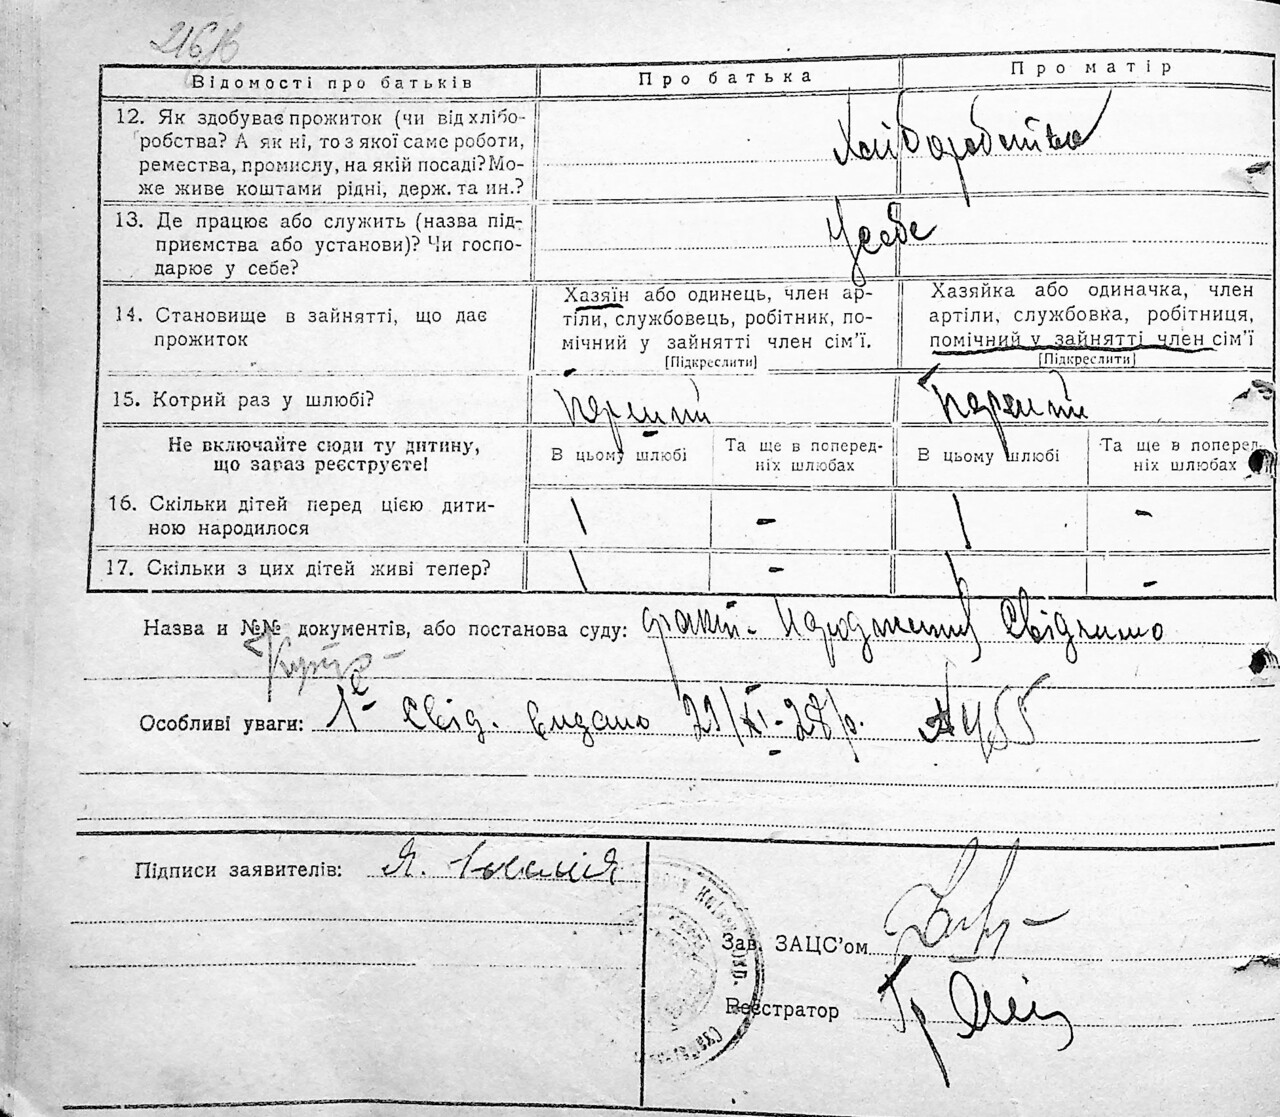 Відомості про батьків
Про батька
Про матір
12. Як здобуває прожиток (чи від хлібо-
робства? А як ні, то з якої саме роботи,
ремества, промислу, на якій посаді? Мо-
же живе коштами рідні, держ. та ин.?
Хліборобство
13. Де працює або служить (назва під-
приємства або установи)? Чи госпо-
дарює у себе?
У себе
14. Становище в зайнятті, що дає
прожиток
Хазяїн або одинець, член ар-
тіли, службовець, робітник, по-
мічний у зайнятті член сім'ї.
[Підкреслити]
Хазяйка або одиначка, член
артіли, службовка, робітниця,
помічний у зайнятті член сім'ї
[Підкреслити]
15. Котрий раз у шлюбі?
Перший
Перший
Не включайте сюди ту дитину,
що зараз реєструєте!
В цьому шлюбі
Та ще в поперед-
ніх шлюбах
В цьому шлюбі
Та ще в поперед-
ніх шлюбах
16. Скільки дітей перед цією дити-
ною народилося
1 - 1 -
17. Скільки з цих дітей живі тепер?
1 - 1 -
Назва и №№ документів, або постанова суду: факт народження свідчимо
Особливі уваги: Свід. видано 21/XI-28 р. № 455
Підписи заявителів: Я.
Зав. ЗАЦС'ом
Реєстратор